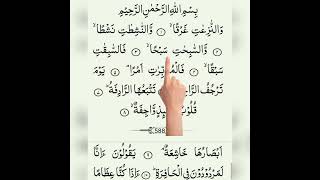 بِسْمِ اللّٰهِ الرَّحْمٰنِ الرَّحِيْمِ
وَالنّٰزِعٰتِ غَرْقًا ۙ ١ وَّالنّٰشِطٰتِ نَشْطًا ۙ
٢ وَّالسّٰبِحٰتِ سَبْحًا ۙ ٣ فَالسّٰبِقٰتِ
سَبْقًا ۙ ٤ اَمْرًا ۘ ٥ يَوْمَ
تَرْجُفُ الرَّاجِفَةُ ۙ ٦ تَتْبَعُهَا الرَّادِفَةُ ۗ ٧
قُلُوْبٌ وَّاجِفَةٌ ۙ ٨
588
اَبْصَارُهَا خَاشِعَةٌ ۘ ٩ يَقُوْلُوْنَ ءَاِنَّا
لَمَرْدُوْدُوْنَ فِى الْحَافِرَةِ ۗ ١٠ ءَاِذَا كُنَّا عِظَامًا